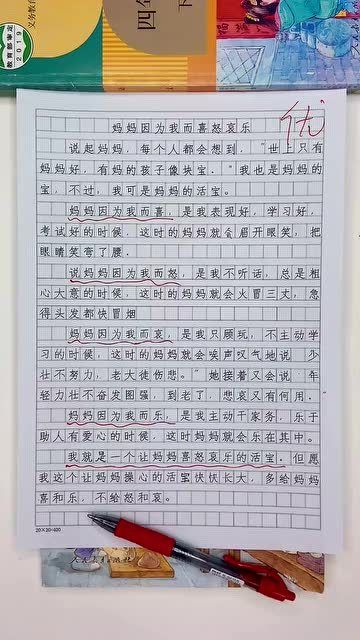 义务教育
四年
下
教育部审定
2019
优
妈妈因为我而喜怒哀乐
说起妈妈，每个人都会想到，“世上只有
妈妈好，有妈的孩子像块宝。”我也是妈妈的
宝，不过，我可是妈妈的活宝。
妈妈因为我而喜，是我表现好，学习好，
考试好的时候，这时的妈妈就会眉开眼笑，把
眼睛笑弯了腰。
说妈妈因为我而怒，是我不听话，总是粗
心大意的时候，这时的妈妈就会火冒三丈，急
得头发都快冒烟
妈妈因为我而哀，是我只顾玩，不主动学
习的时候，这时的妈妈就会唉声叹气地说 少
壮不努力，老大徒伤悲。”她接着又会说 年
轻力壮不奋发图强，到老了，悲哀又有何用。
妈妈因为我而乐，是我主动干家务，乐于
助人有爱心的时候，这时妈妈就会乐在其中。
我就是一个让妈妈喜怒哀乐的活宝。但愿
我这个让妈妈操心的活宝伏伏长大，多给妈妈
喜和乐，不给怒和哀。
20×20=400